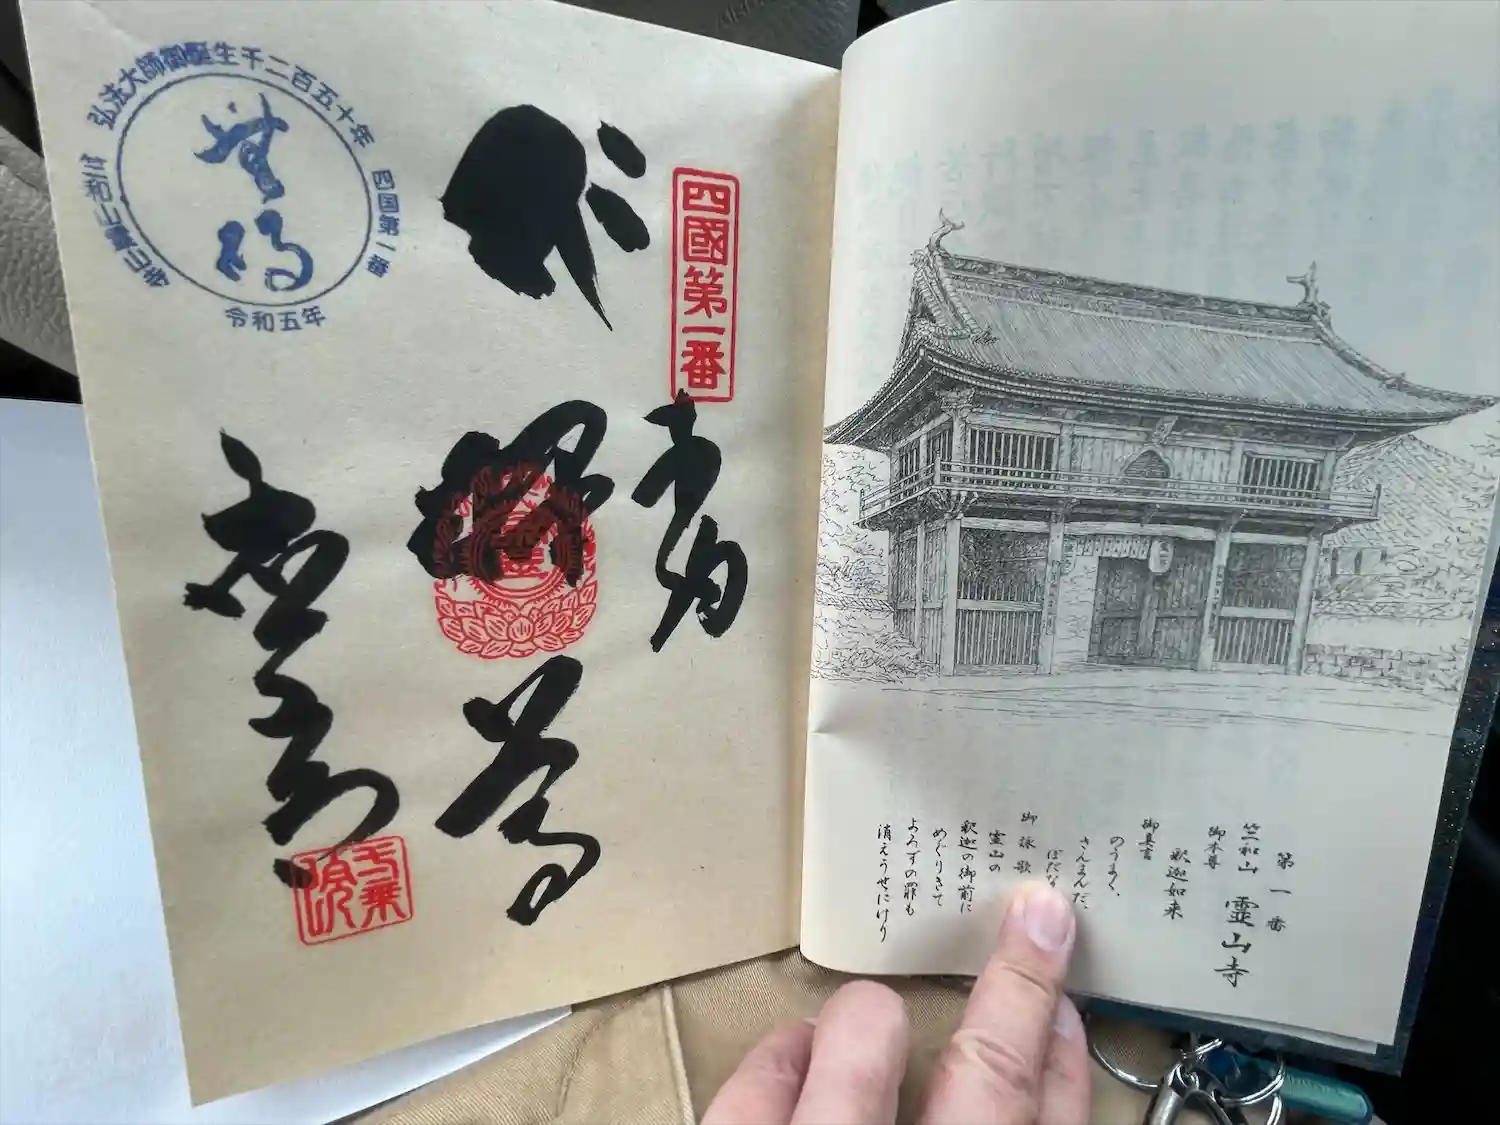 第一番
竺和山 霊山寺
御本尊
釈迦如来
御真言
のうまく、
さんまんだ、
ぼだな
御詠歌
霊山の
釈迦の御前に
めぐりきて
よろずの罪も
消えうせにけり
四國第一番
奉納
釋迦
弘法大師御誕生千二百五十年
四国第一番
令和五年
竺和山霊山寺